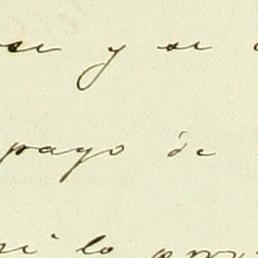 se y se
pago de
ni lo